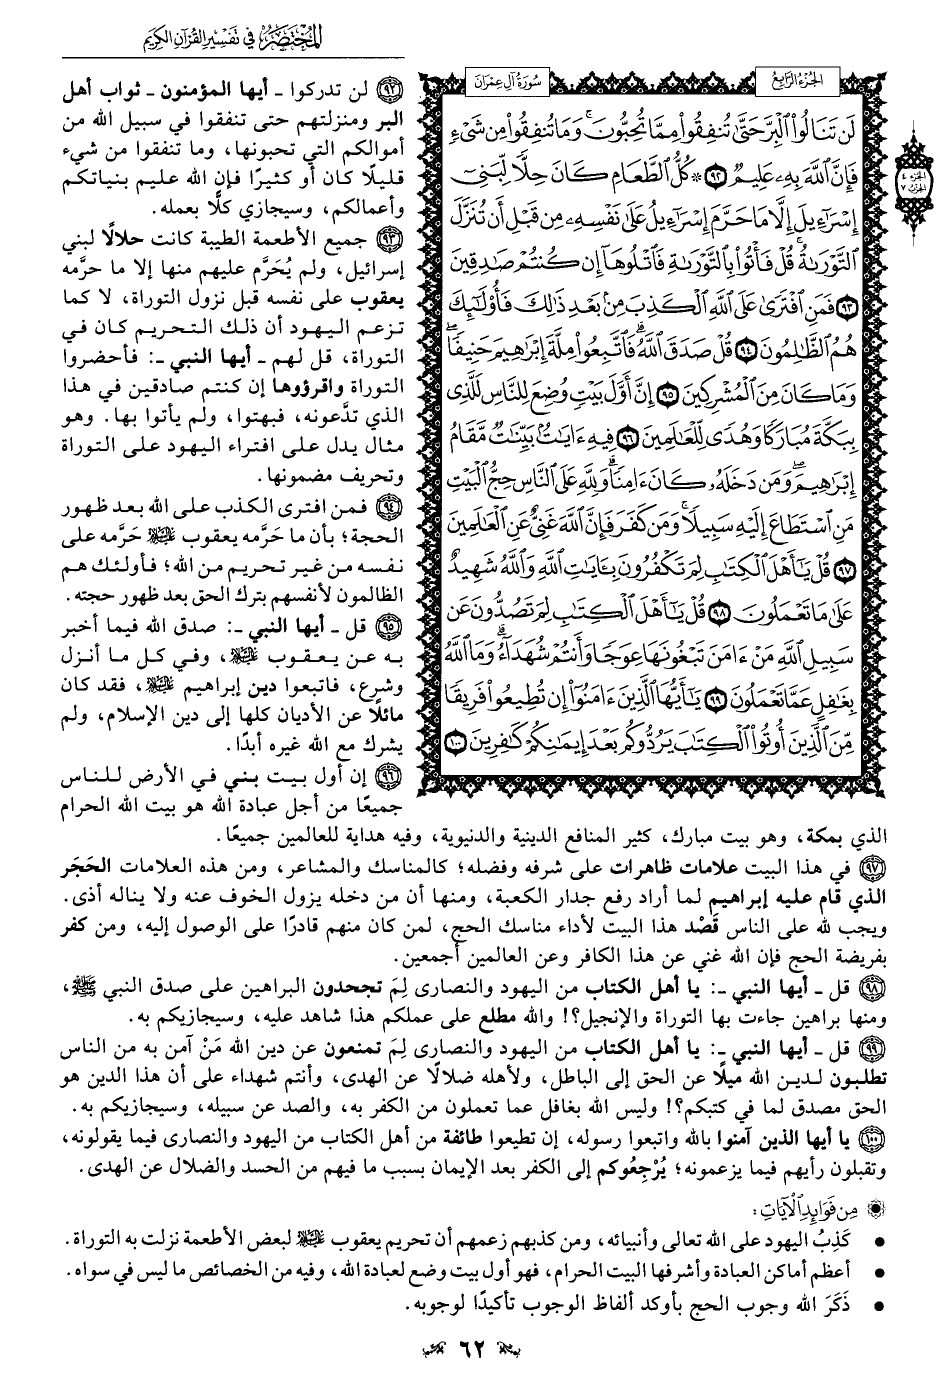 المختصر في تفسير القرآن الكريم
الجزء الرابع
سورة آل عمران
الجزء ٤
الحزب ٧
لَن تَنَالُوا۟ ٱلْبِرَّ حَتَّىٰ تُنفِقُوا۟ مِمَّا تُحِبُّونَ ۚ وَمَا تُنفِقُوا۟ مِن شَىْءٍ
فَإِنَّ ٱللَّهَ بِهِۦ عَلِيمٌ ٩٢ ۞ كُلُّ ٱلطَّعَامِ كَانَ حِلًّا لِّبَنِىٓ
إِسْرَٰٓءِيلَ إِلَّا مَا حَرَّمَ إِسْرَٰٓءِيلُ عَلَىٰ نَفْسِهِۦ مِن قَبْلِ أَن تُنَزَّلَ
ٱلتَّوْرَىٰةُ ۗ قُلْ فَأْتُوا۟ بِٱلتَّوْرَىٰةِ فَٱتْلُوهَآ إِن كُنتُمْ صَٰدِقِينَ
٩٣ فَمَنِ ٱفْتَرَىٰ عَلَى ٱللَّهِ ٱلْكَذِبَ مِنۢ بَعْدِ ذَٰلِكَ فَأُو۟لَٰٓئِكَ
هُمُ ٱلظَّٰلِمُونَ ٩٤ قُلْ صَدَقَ ٱللَّهُ ۗ فَٱتَّبِعُوا۟ مِلَّةَ إِبْرَٰهِيمَ حَنِيفًا ۖ
وَمَا كَانَ مِنَ ٱلْمُشْرِكِينَ ٩٥ إِنَّ أَوَّلَ بَيْتٍ وُضِعَ لِلنَّاسِ لَلَّذِى
بِبَكَّةَ مُبَارَكًا وَهُدًى لِّلْعَٰلَمِينَ ٩٦ فِيهِ ءَايَٰتٌۢ بَيِّنَٰتٌ مَّقَامُ
إِبْرَٰهِيمَ ۖ وَمَن دَخَلَهُۥ كَانَ ءَامِنًا ۗ وَلِلَّهِ عَلَى ٱلنَّاسِ حِجُّ ٱلْبَيْتِ
مَنِ ٱسْتَطَاعَ إِلَيْهِ سَبِيلًا ۚ وَمَن كَفَرَ فَإِنَّ ٱللَّهَ غَنِىٌّ عَنِ ٱلْعَٰلَمِينَ
٩٧ قُلْ يَٰٓأَهْلَ ٱلْكِتَٰبِ لِمَ تَكْفُرُونَ بِـَٔايَٰتِ ٱللَّهِ وَٱللَّهُ شَهِيدٌ
عَلَىٰ مَا تَعْمَلُونَ ٩٨ قُلْ يَٰٓأَهْلَ ٱلْكِتَٰبِ لِمَ تَصُدُّونَ عَن
سَبِيلِ ٱللَّهِ مَنْ ءَامَنَ تَبْغُونَهَا عِوَجًا وَأَنتُمْ شُهَدَآءُ ۗ وَمَا ٱللَّهُ
بِغَٰفِلٍ عَمَّا تَعْمَلُونَ ٩٩ يَٰٓأَيُّهَا ٱلَّذِينَ ءَامَنُوٓا۟ إِن تُطِيعُوا۟ فَرِيقًا
مِّنَ ٱلَّذِينَ أُوتُوا۟ ٱلْكِتَٰبَ يَرُدُّوكُم بَعْدَ إِيمَٰنِكُمْ كَٰفِرِينَ ١٠٠
٩٢ لن تدركوا ـ أيها المؤمنون ـ ثواب أهل
البر ومنزلتهم حتى تنفقوا في سبيل الله من
أموالكم التي تحبونها، وما تنفقوا من شيء
قليلًا كان أو كثيرًا فإن الله عليم بنياتكم
وأعمالكم، وسيجازي كلًّا بعمله.
٩٣ جميع الأطعمة الطيبة كانت حلالًا لبني
إسرائيل، ولم يُحَرَّم عليهم منها إلا ما حرَّمه
يعقوب على نفسه قبل نزول التوراة، لا كما
تزعم اليهود أن ذلك التحريم كان في
التوراة، قل لهم ـ أيها النبي ـ: فأحضروا
التوراة واقرؤوها إن كنتم صادقين في هذا
الذي تدَّعونه، فبهتوا، ولم يأتوا بها. وهو
مثال يدل على افتراء اليهود على التوراة
وتحريف مضمونها.
٩٤ فمن افترى الكذب على الله بعد ظهور
الحجة؛ بأن ما حَرَّمه يعقوب عليه السلام حَرَّمه على
نفسه من غير تحريم من الله؛ فأولئك هم
الظالمون لأنفسهم بترك الحق بعد ظهور حجته.
٩٥ قل ـ أيها النبي ـ: صدق الله فيما أخبر
به عن يعقوب عليه السلام، وفي كل ما أنزل
وشرع، فاتبعوا دين إبراهيم عليه السلام، فقد كان
مائلًا عن الأديان كلها إلى دين الإسلام، ولم
يشرك مع الله غيره أبدًا.
٩٦ إن أول بيت بني في الأرض للناس
جميعًا من أجل عبادة الله هو بيت الله الحرام
الذي بمكة، وهو بيت مبارك، كثير المنافع الدينية والدنيوية، وفيه هداية للعالمين جميعًا.
٩٧ في هذا البيت علامات ظاهرات على شرفه وفضله؛ كالمناسك والمشاعر، ومن هذه العلامات الحَجَر
الذي قام عليه إبراهيم لما أراد رفع جدار الكعبة، ومنها أن من دخله يزول الخوف عنه ولا يناله أذى.
ويجب لله على الناس قَصْد هذا البيت لأداء مناسك الحج، لمن كان منهم قادرًا على الوصول إليه، ومن كفر
بفريضة الحج فإن الله غني عن هذا الكافر وعن العالمين أجمعين.
٩٨ قل ـ أيها النبي ـ: يا أهل الكتاب من اليهود والنصارى لِمَ تجحدون البراهين على صدق النبي ﷺ،
ومنها براهين جاءت بها التوراة والإنجيل؟! والله مطلع على عملكم هذا شاهد عليه، وسيجازيكم به.
٩٩ قل ـ أيها النبي ـ: يا أهل الكتاب من اليهود والنصارى لِمَ تمنعون عن دين الله مَنْ آمن به من الناس
تطلبون لدين الله ميلًا عن الحق إلى الباطل، ولأهله ضلالًا عن الهدى، وأنتم شهداء على أن هذا الدين هو
الحق مصدق لما في كتبكم؟! وليس الله بغافل عما تعملون من الكفر به، والصد عن سبيله، وسيجازيكم به.
١٠٠ يا أيها الذين آمنوا بالله واتبعوا رسوله، إن تطيعوا طائفة من أهل الكتاب من اليهود والنصارى فيما يقولونه،
وتقبلون رأيهم فيما يزعمونه؛ يُرْجِعُوكم إلى الكفر بعد الإيمان بسبب ما فيهم من الحسد والضلال عن الهدى.
من فوائد الآيات:
• كَذِبُ اليهود على الله تعالى وأنبيائه، ومن كذبهم زعمهم أن تحريم يعقوب عليه السلام لبعض الأطعمة نزلت به التوراة.
• أعظم أماكن العبادة وأشرفها البيت الحرام، فهو أول بيت وضع لعبادة الله، وفيه من الخصائص ما ليس في سواه.
• ذَكَرَ الله وجوب الحج بأوكد ألفاظ الوجوب تأكيدًا لوجوبه.
٦٢